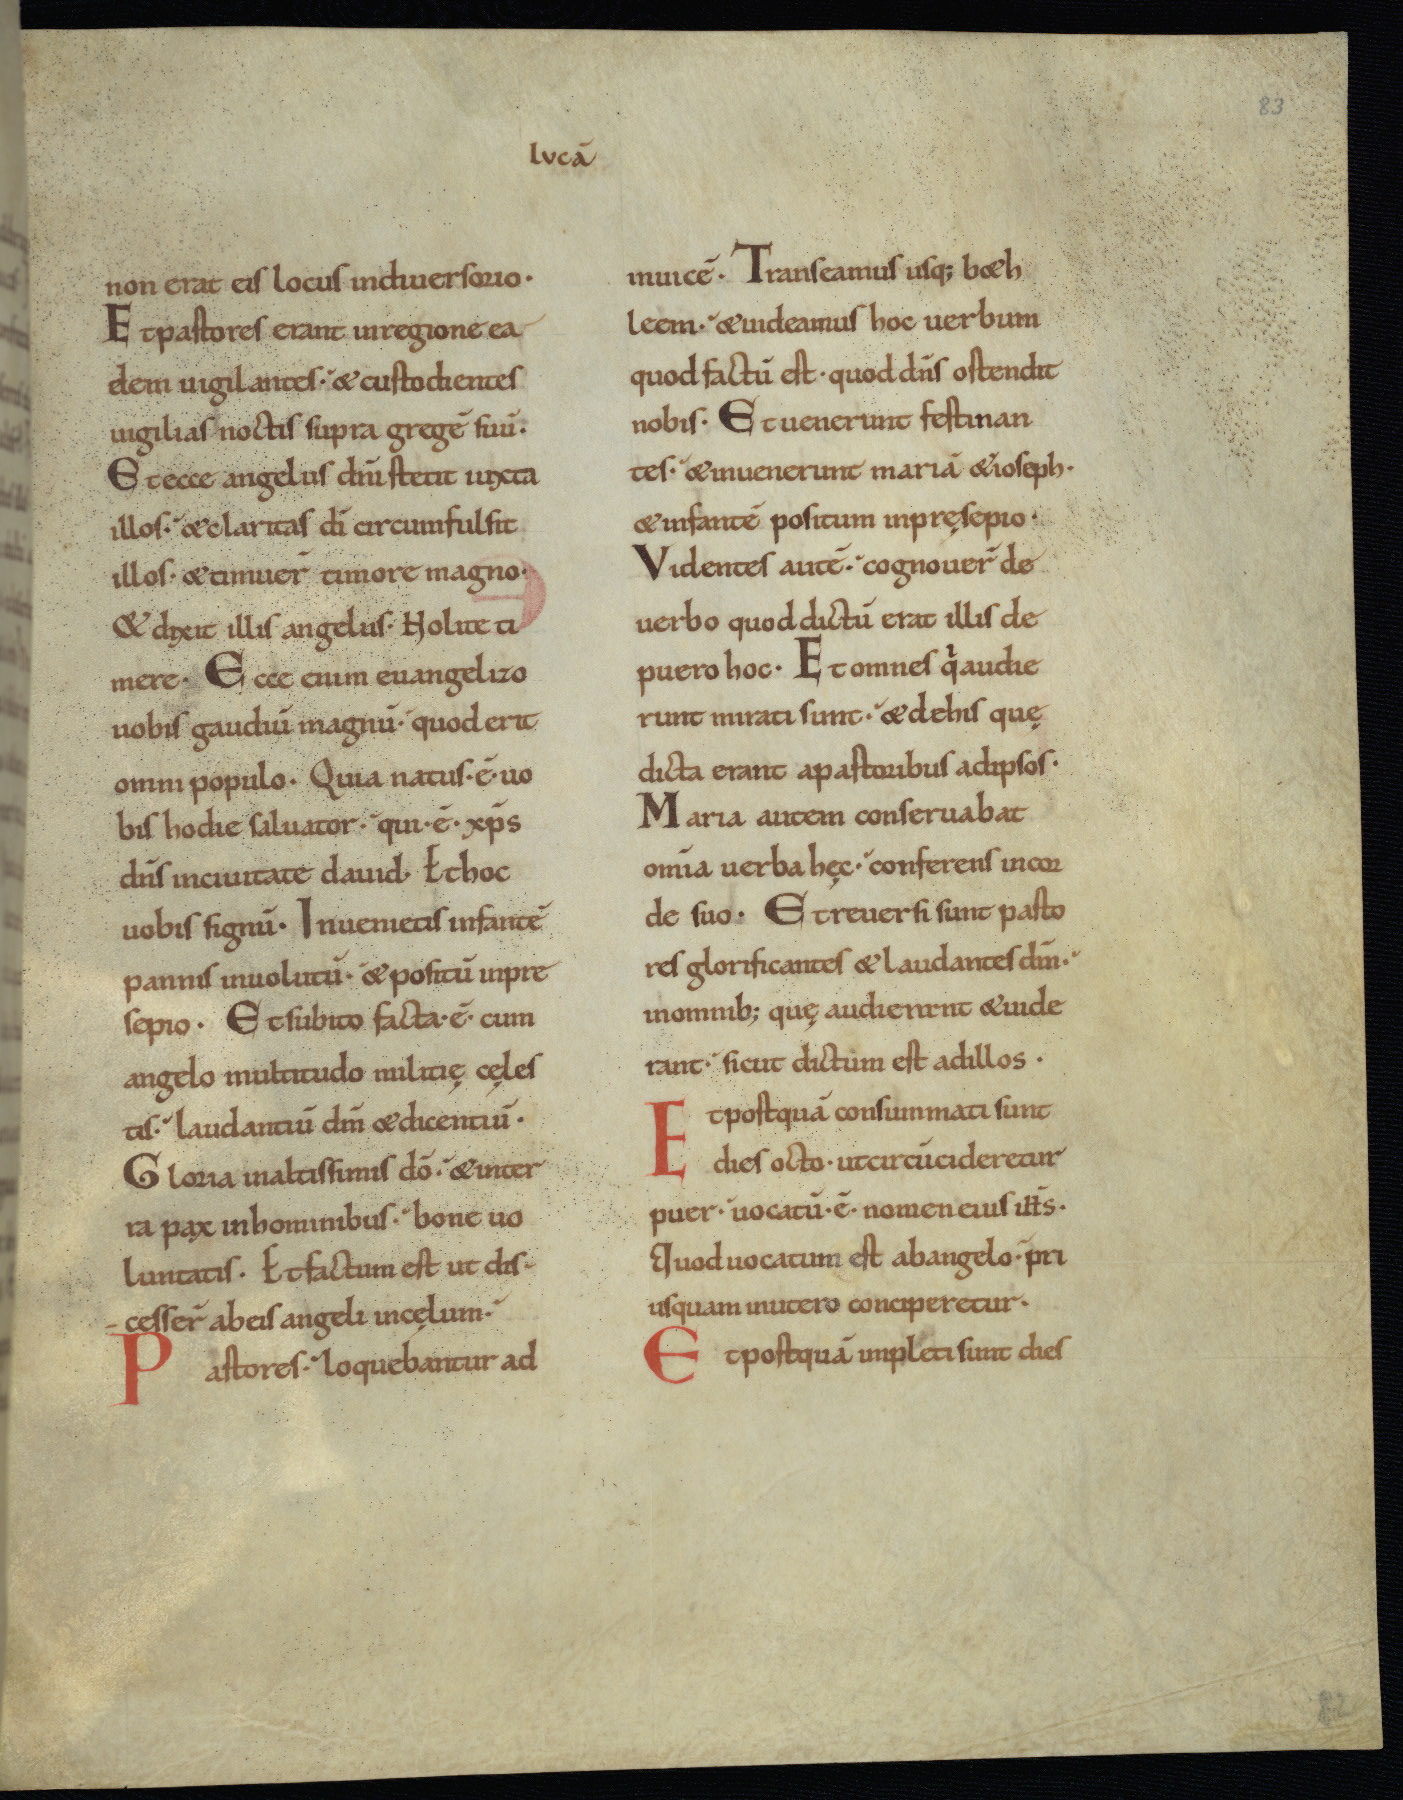 83
lvcā
non erat eis locus indiuersorio·
Et pastores erant inregione ea
dem uigilantes· &custodientes
uigilias noctis supra gregē suū·
Et ecce angelus dnī stetit iuxta
illos· &claritas dī circumfulsit
illos· &timuer̄ timore magno·
& dixit illis angelus· Nolite ti
mere· Ecce enim euangelizo
uobis gaudiū magnū· quod erit
omni populo· Quia natus·ē·uo
bis hodie saluator· qui·ē· xp̄s
dn̄s inciuitate dauid· Et hoc
uobis signū· Inuenietis infantē
pannis inuolutū· &positū inpre
sepio· Et subito facta·ē· cum
angelo multitudo militię cęles
tis· laudantiū dm̄ &dicentiū·
Gloria inaltissimis dō· &inter
ra pax inhominibus· bone uo
luntatis· Et factum est ut dis-
-cesser̄ abeis angeli incęlum·
Pastores· loquebantur ad
inuicē· Transeamus usq; b&h
leem· &uideamus hoc uerbum
quod factū est· quod dn̄s ostendit
nobis· Et uenerunt festinan
tes· &inuenerunt mariā &ioseph·
&infantē positum inpręsepio·
Videntes autē· cognouer̄ de
uerbo quod dictū erat illis de
puero hoc· Et omnes qi audie
runt mirati sunt· &dehis quę
dicta erant apastoribus adipsos·
Maria autem conseruabat
omīa uerba hęc· conferens incor
de suo· Et reuersi sunt pasto
res glorificantes &laudantes dm̄·
inomnib; quę audierant &uide
rant· sicut dictum est adillos·
Et postquā consummati sunt
dies octo· utcircūcideretur
puer· uocatū·ē· nomen eius ihs̄·
Quod uocatum est abangelo· pri
usquam inutero conciperetur·
Et postquā impleti sunt dies
82